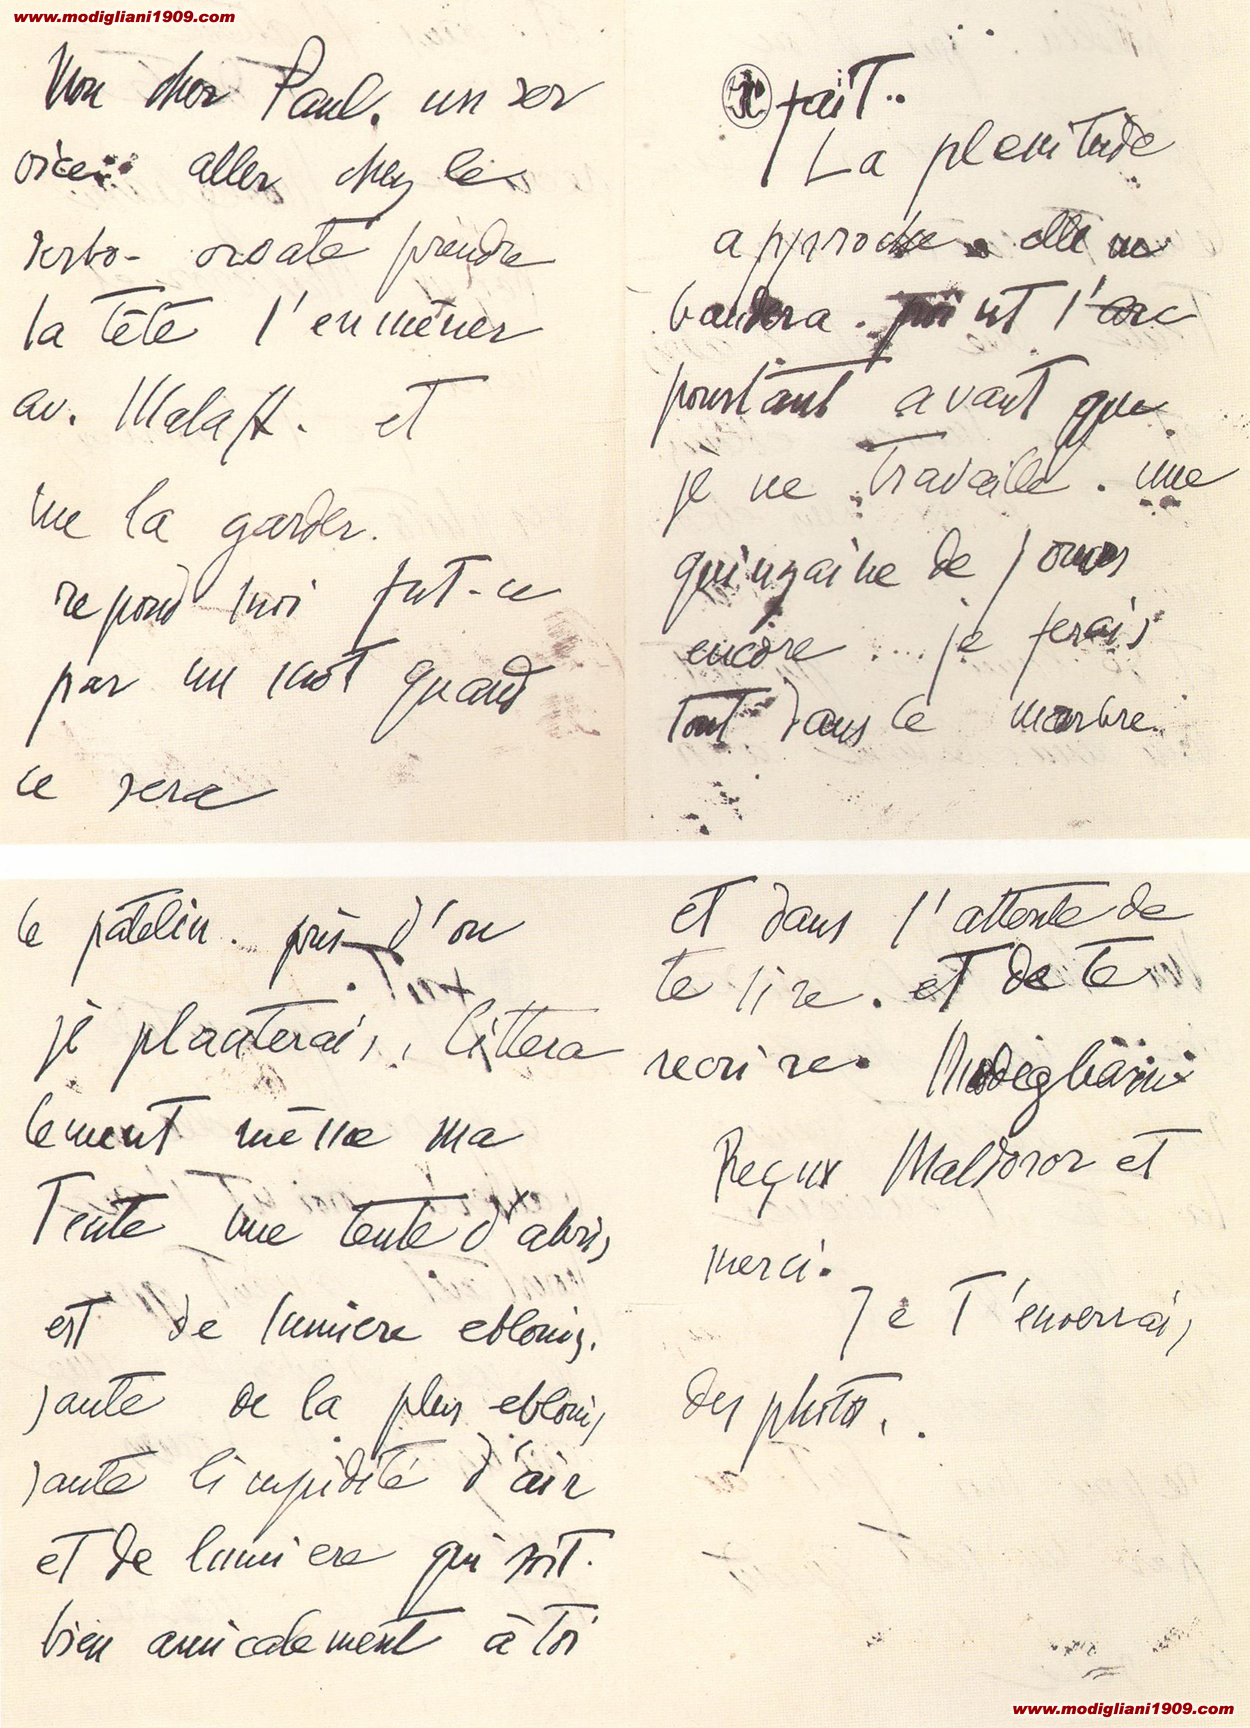 www.modigliani1909.com
Mon cher Paul. un ser
vice: aller chez le
serbo-croate prendre
la tête l'enmêner
av. Malaft. et
me la garder.
repond moi fut-ce
par un mot quand
ce sera
fait..
La plenitude
approche. elle ne
bandera. point l'arc
pourtant avant que
je ne travaille. une
quinzaine de jours
encore.... je ferais
tout dans le marbre.
le patelin. pris d'ou
je planterais, littera
lement même ma
Tente une tente d'abris
est de lumiere eblouis.
sante de la plus eblouis
sante limpidité d'air
et de lumiere qui soit.
bien amicalement à toi
et dans l'attente de
te lire. et de te
recrire. Modigliani
Reçux Maldoror et
merci.
Je t'enverrais
des photos..
www.modigliani1909.com